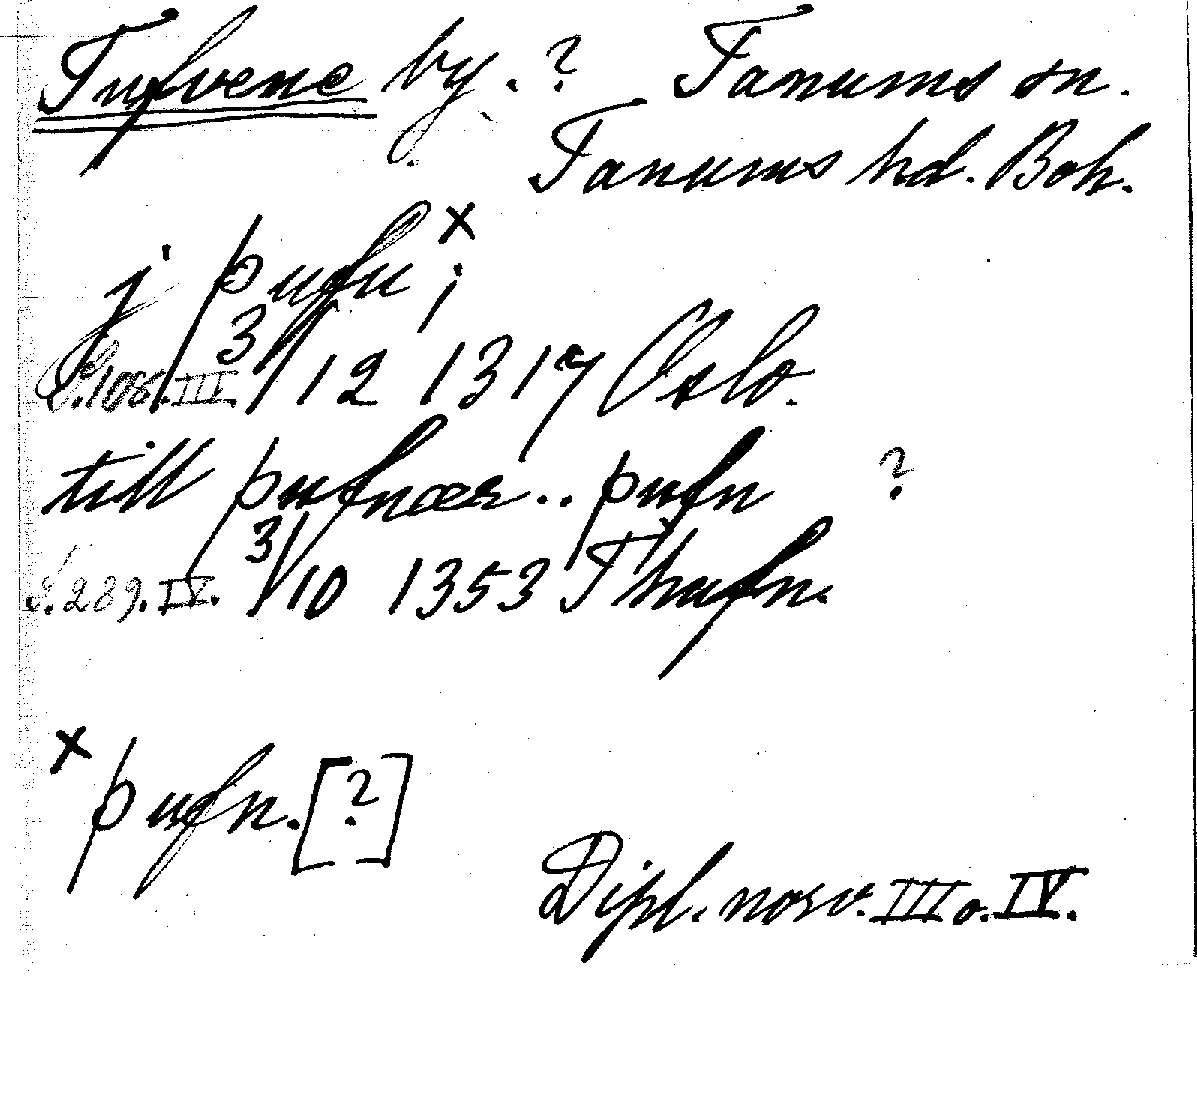 Tufvene by. ? Tanums sn.
Tanums hd. Boh.
j þufu x i
S. 108. III. 3/12 1317 Oslo.
till þufnær .. þufn ?
S. 289. IV. 3/10 1353 Thufn.
x þufn. [?]
Dipl. norv. III o. IV.